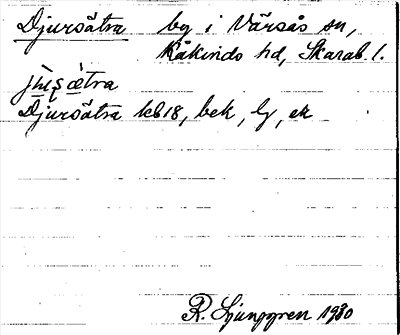 Djursätra by i Värsås sn,
Kåkinds hd, Skarab. l.
Djursätra kb18, bek, ly, ek
R. Ljunggren 1930